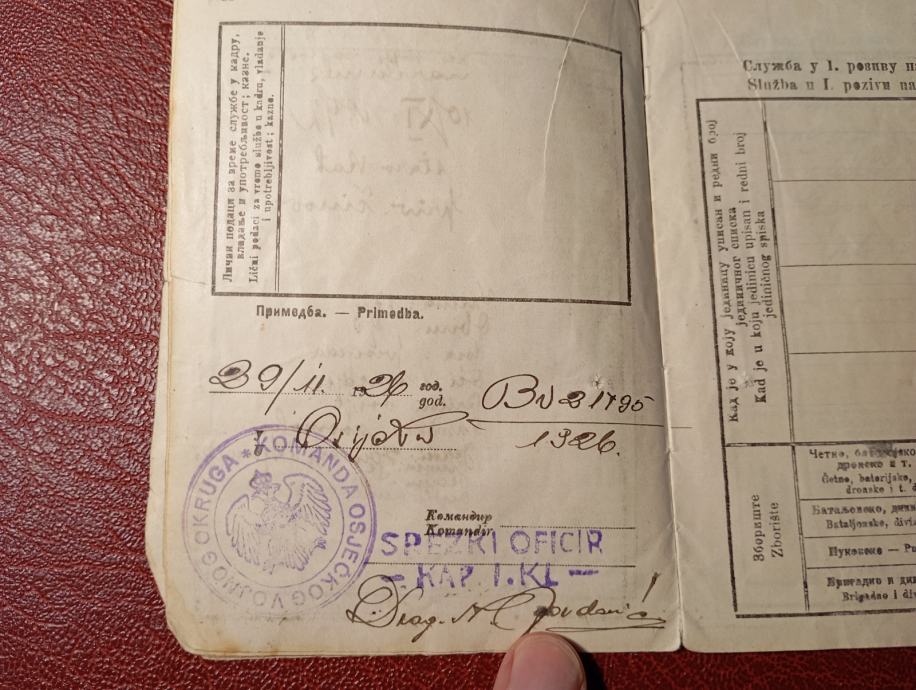 Лични подаци за време службе у кадру,
владање и употребљивост; казне.
Lični podaci za vreme službe u kadru, vladanje
i upotrebljivost; kazne.
Примедба. — Primedba.
29/11. 1926 год.
god.
1926.
У Osijeku
KOMANDA OSJEČKOG VOJNOG OKRUGA *
Командир
Komandir
OFICIR
— KAP. I. KL —
Drag. A.
Служба у 1. позиву
Služba u I. pozivu
Кад је у коју јединицу уписан и редни број
јединичног списка
Kad je u koju jedinicu upisan i redni broj
jediničnog spiska
Збориште
Zborište
Четно,
дронско и т.
Četno, baterijsko,
dronsko i t. d
Батаљонско,
Bataljonsko,
Пуковско —
Бригадно и
Brigadno i